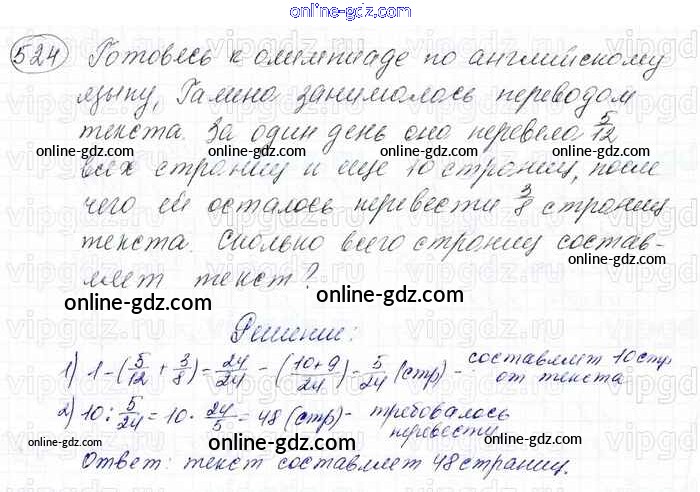 online-gdz.com
524 Готовясь к олимпиаде по английскому
языку, Галина занималась переводом
текста. За один день она перевела 5/12
online-gdz.com online-gdz.com online-gdz.com
всех страниц и ещё 10 страниц, после
чего ей осталось перевести 3/8 страниц
online-gdz.com online-gdz.com online-gdz.com
текста. Сколько всего страниц состав-
ляет текст?
online-gdz.com online-gdz.com
Решение:
1) 1 - (5/12 + 3/8) = 24/24 - (10+9/24) = 5/24 (стр) - составляет 10 стр
от текста
online-gdz.com online-gdz.com
2) 10 : 5/24 = 10 · 24/5 = 48 (стр) - требовалось
перевести
online-gdz.com online-gdz.com online-gdz.com
Ответ: текст составляет 48 страниц.
online-gdz.com online-gdz.com